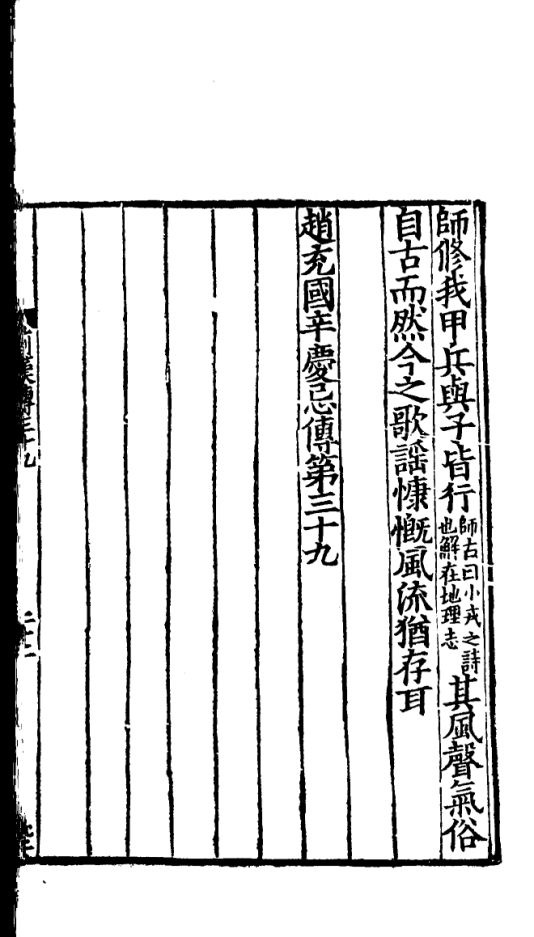 師修我甲兵與子皆行師古曰小戎之詩也解在地理志其風聲氣俗
自古而然今之歌謡慷慨風流猶存耳
趙充國辛慶忌傳第三十九
前漢傳三十九